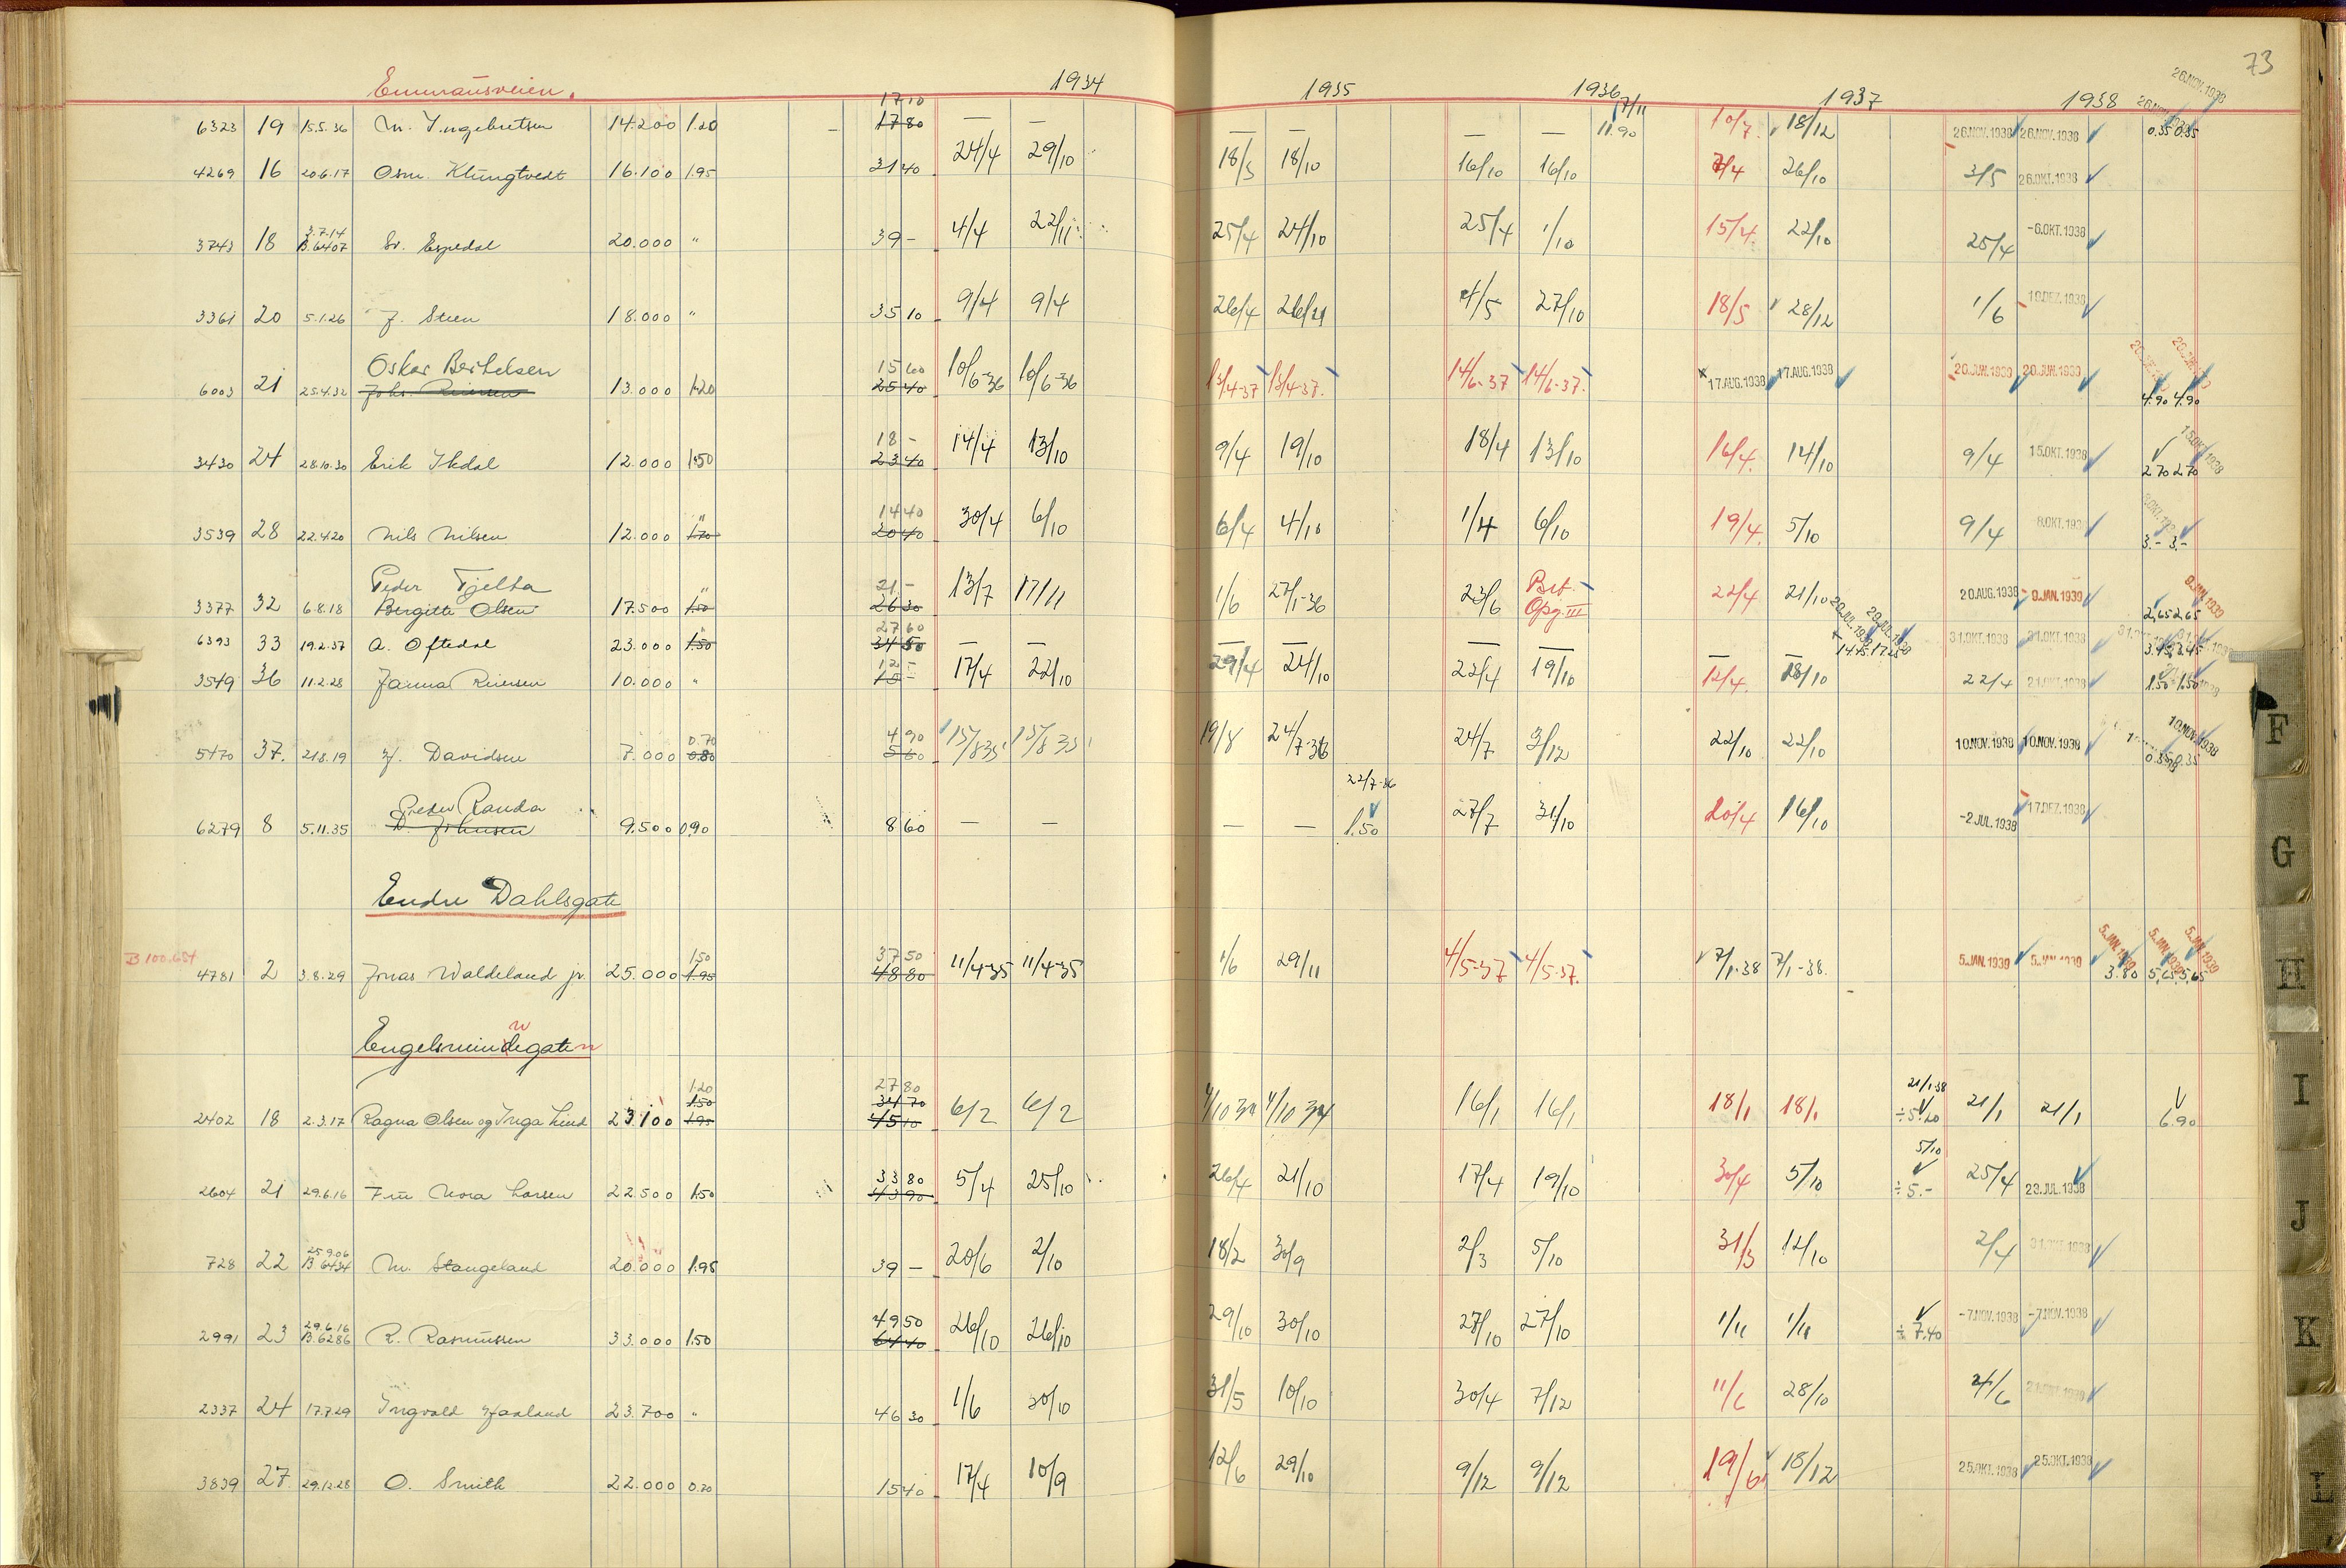 73
Emmausveien. 1934 1935 1936 1937 1938 26. NOV. 1938
17 10 7/11
6323 19 15.5.36 M. Ingebretsen 14.200 1.20 17 80 — — — — — — 11.90 10/7 18/12 26. NOV. 1938 26. NOV. 1938 0.35 0.35
4269 16 20.6.17 Osm. Klungtvedt 16.100 1.95 31 40 24/4 29/10 18/3 18/10 16/10 16/10 7/4 26/10 3/5 26. OKT. 1938
3.7.14
3743 18 B.6407 Sv. Espedal 20.000 " 39 - 4/4 22/11 25/4 24/10 25/4 1/10 15/4 22/10 25/4 -6. OKT. 1938
3361 20 5.1.26 J. Steen 18.000 " 35 10 9/4 9/4 26/4 26/21 4/5 27/10 18/5 28/12 1/6 10. DEZ. 1938
Oskar Bertelsen 15 60
6003 21 25.4.32 13.000 1.20 25 40 10/6-36 10/6-36 13/4-37 13/4-37. 14/6-37 14/6-37. 17. AUG. 1938 17. AUG. 1938 20. JUN. 1939 20. JUN. 1939 4.90 4.90
18 - 15. OKT. 1938
3430 24 28.10.30 Erik Ikdal 12.000 1.50 23 40 14/4 13/10 9/4 19/10 18/4 13/10 16/4 14/10 9/4 15. OKT. 1938 2.70 2.70
" 14 40
3539 28 22.4.20 Nils Nilsen 12.000 1.70 20 40 30/4 6/10 6/4 4/10 1/4 6/10 19/4 5/10 9/4 8. OKT. 193 3.- 3.-
Peder Fjelta " 21 - Bet. 9. JAN. 1939
3377 32 6.8.18 Bergitte Olsen 17.500 1.50 26 30 13/7 17/11 1/6 27/1-36 23/6 Opg III 22/4 21/10 20. AUG. 1938 9. JAN. 1939 2,65 2,65
" 27 60 29. JUL. 1938 29. JUL. 1938
6393 33 19.2.37 A. Oftedal 23.000 1.50 34 50 — — — — — — — — 14.75 17.25 31. OKT. 1938 31. OKT. 1938 3.45 3.45
12 -
3549 36 11.2.28 Janna 10.000 " 15 - 17/4 22/10 29/4 24/10 22/4 19/10 12/4. 18/10 22/4 21. OKT. 1938 1.50 1.50
0.70 4 90 10. NOV. 1938
5470 37. 21.8.19 Davidsen 7.000 0.80 5 60 15/8 35 15/8 35 19/8 24/7-36 24/7 3/12 22/10 22/10 10. NOV. 1938 10. NOV. 1938 0.35 0.35
Peder Randa 22/7-36
6279 8 5.11.35 D. Johnsen 9.500 0.90 8 60 — — — — 1.50 27/7 31/10 20/4 16/10 -2. JUL. 1938 17. DEZ. 1938
Endre Dahlsgate
B 100.654 1.50 37 50 5. JAN. 1939 5. JAN. 1939 5. JAN. 1939
4781 2 3.8.29 Jonas Waldeland jr. 25.000 1.95 48 80 11/4-35 11/4-35 1/6 29/11 4/5-37 4/5-37. 7/1-38 7/1-38. 5. JAN. 1939 5. JAN. 1939 3.80 5,65 5,65
Engelsmindegaten
1.20 27 80
1.50 34 70 21/1-38
2402 18 2.3.17 Ragna Olsen og Inga Lind 23.100 1.95 45 10 6/2 6/2 4/10 34 4/10 34 16/1 16/1 18/1 18/1 ÷5.20 21/1 21/1 6.90
33 80 5/10
2604 21 29.6.16 Fru Nora Larsen 22.500 1.50 43 90 5/4 25/10 26/4 21/10 17/4 19/10 30/4 5/10 ÷5.- 25/4 23. JUL. 1938
25.9.06
728 22 B 6434 M. Stangeland 20.000 1.95 39 - 20/6 2/10 18/2 30/9 2/3 5/10 31/3 12/10 2/4 31. OKT. 1938
29.6.16 49 50
2991 23 B.6286 R. Rasmussen 33.000 1.50 64 40 26/10 26/10 29/10 30/10 27/10 27/10 1/11 1/11 ÷7.40 -7. NOV. 1938 -7. NOV. 1938
2337 24 17.7.29 Ingvald Haaland 23.700 " 46 30 1/6 30/10 31/5 10/10 30/4 7/12 11/6 28/10 24/6 21. OKT. 1938
3839 27 29.12.28 O. Smith 22.000 0.70 15 40 17/4 10/9 12/6 29/10 9/12 9/12 19/6 18/12 25. OKT. 1938 25. OKT. 1938
F
G
H
I
J
K
L